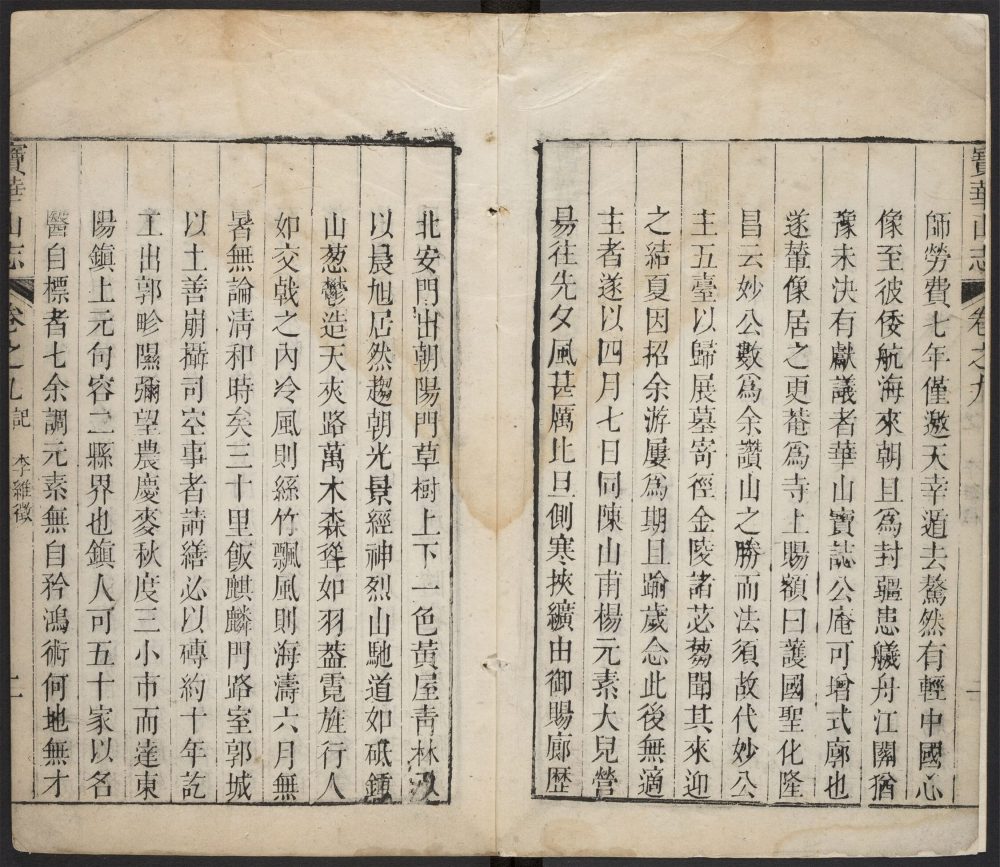 寶華山志
卷之九
一
師勞費七年僅邀天幸遁去驁然有輕中國心
像至彼倭航海來朝且為封疆患艤舟江關猶
豫未決有獻議者華山寶誌公庵可增式廓也
遂輦像居之更菴為寺上賜額曰護國聖化隆
昌云妙公數為余讚山之勝而法須故代妙公
主五臺以歸展墓寄徑金陵諸苾蒭聞其來迎
之結夏因招余游屢為期且踰歲念此後無適
主者遂以四月七日同陳山甫楊元素大兒營
易往先夕風甚厲比旦側寒挾纊由御賜廊歷
北安門出朝陽門草樹上下一色黃屋青林
以晨旭居然趨朝光景經神烈山馳道如砥鍾
山葱鬱造天夾路萬木森聳如羽葢霓旌行人
如交戟之內冷風則絲竹飄風則海濤六月無
暑無論清和時矣三十里飯麒麟門路室郭城
以土善崩攝司空事者請繕必以磚約十年訖
工出郭畛隰彌望農慶麥秋度三小市而達東
陽鎮上元句容二縣界也鎮人可五十家以名
醫自標者七余調元素無自矜鴻術何地無才
寶華山志
卷之九
記
李維
二